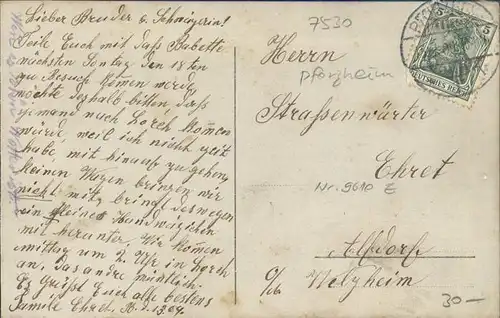 Lieber Bruder u. Schwägerin!
Teile Euch mit daß Babette
nächsten Sontag den 18ten
zu Besuch kommen werde
möchte deshalb bitten daß
jemand nach Lorch kommen
würde, weil ich nicht Zeit
habe, mit hinauf zu gehen
keinen Wagen bringen wir
nicht mit, bringt deswegen
ein kleines Handwägelchen
mit herunter. Wir kommen
mittag um 2 Uhr in Lorch
an. Das andre mündlich.
Es Grüßt Euch alle bestens
Familie Ehret.
7530
Herrn
Pforzheim
Strassenwärter
Ehret
Nr. 9610 E
Alfdorf
O/A Welzheim
30-
5
DEUTSCHES REICH